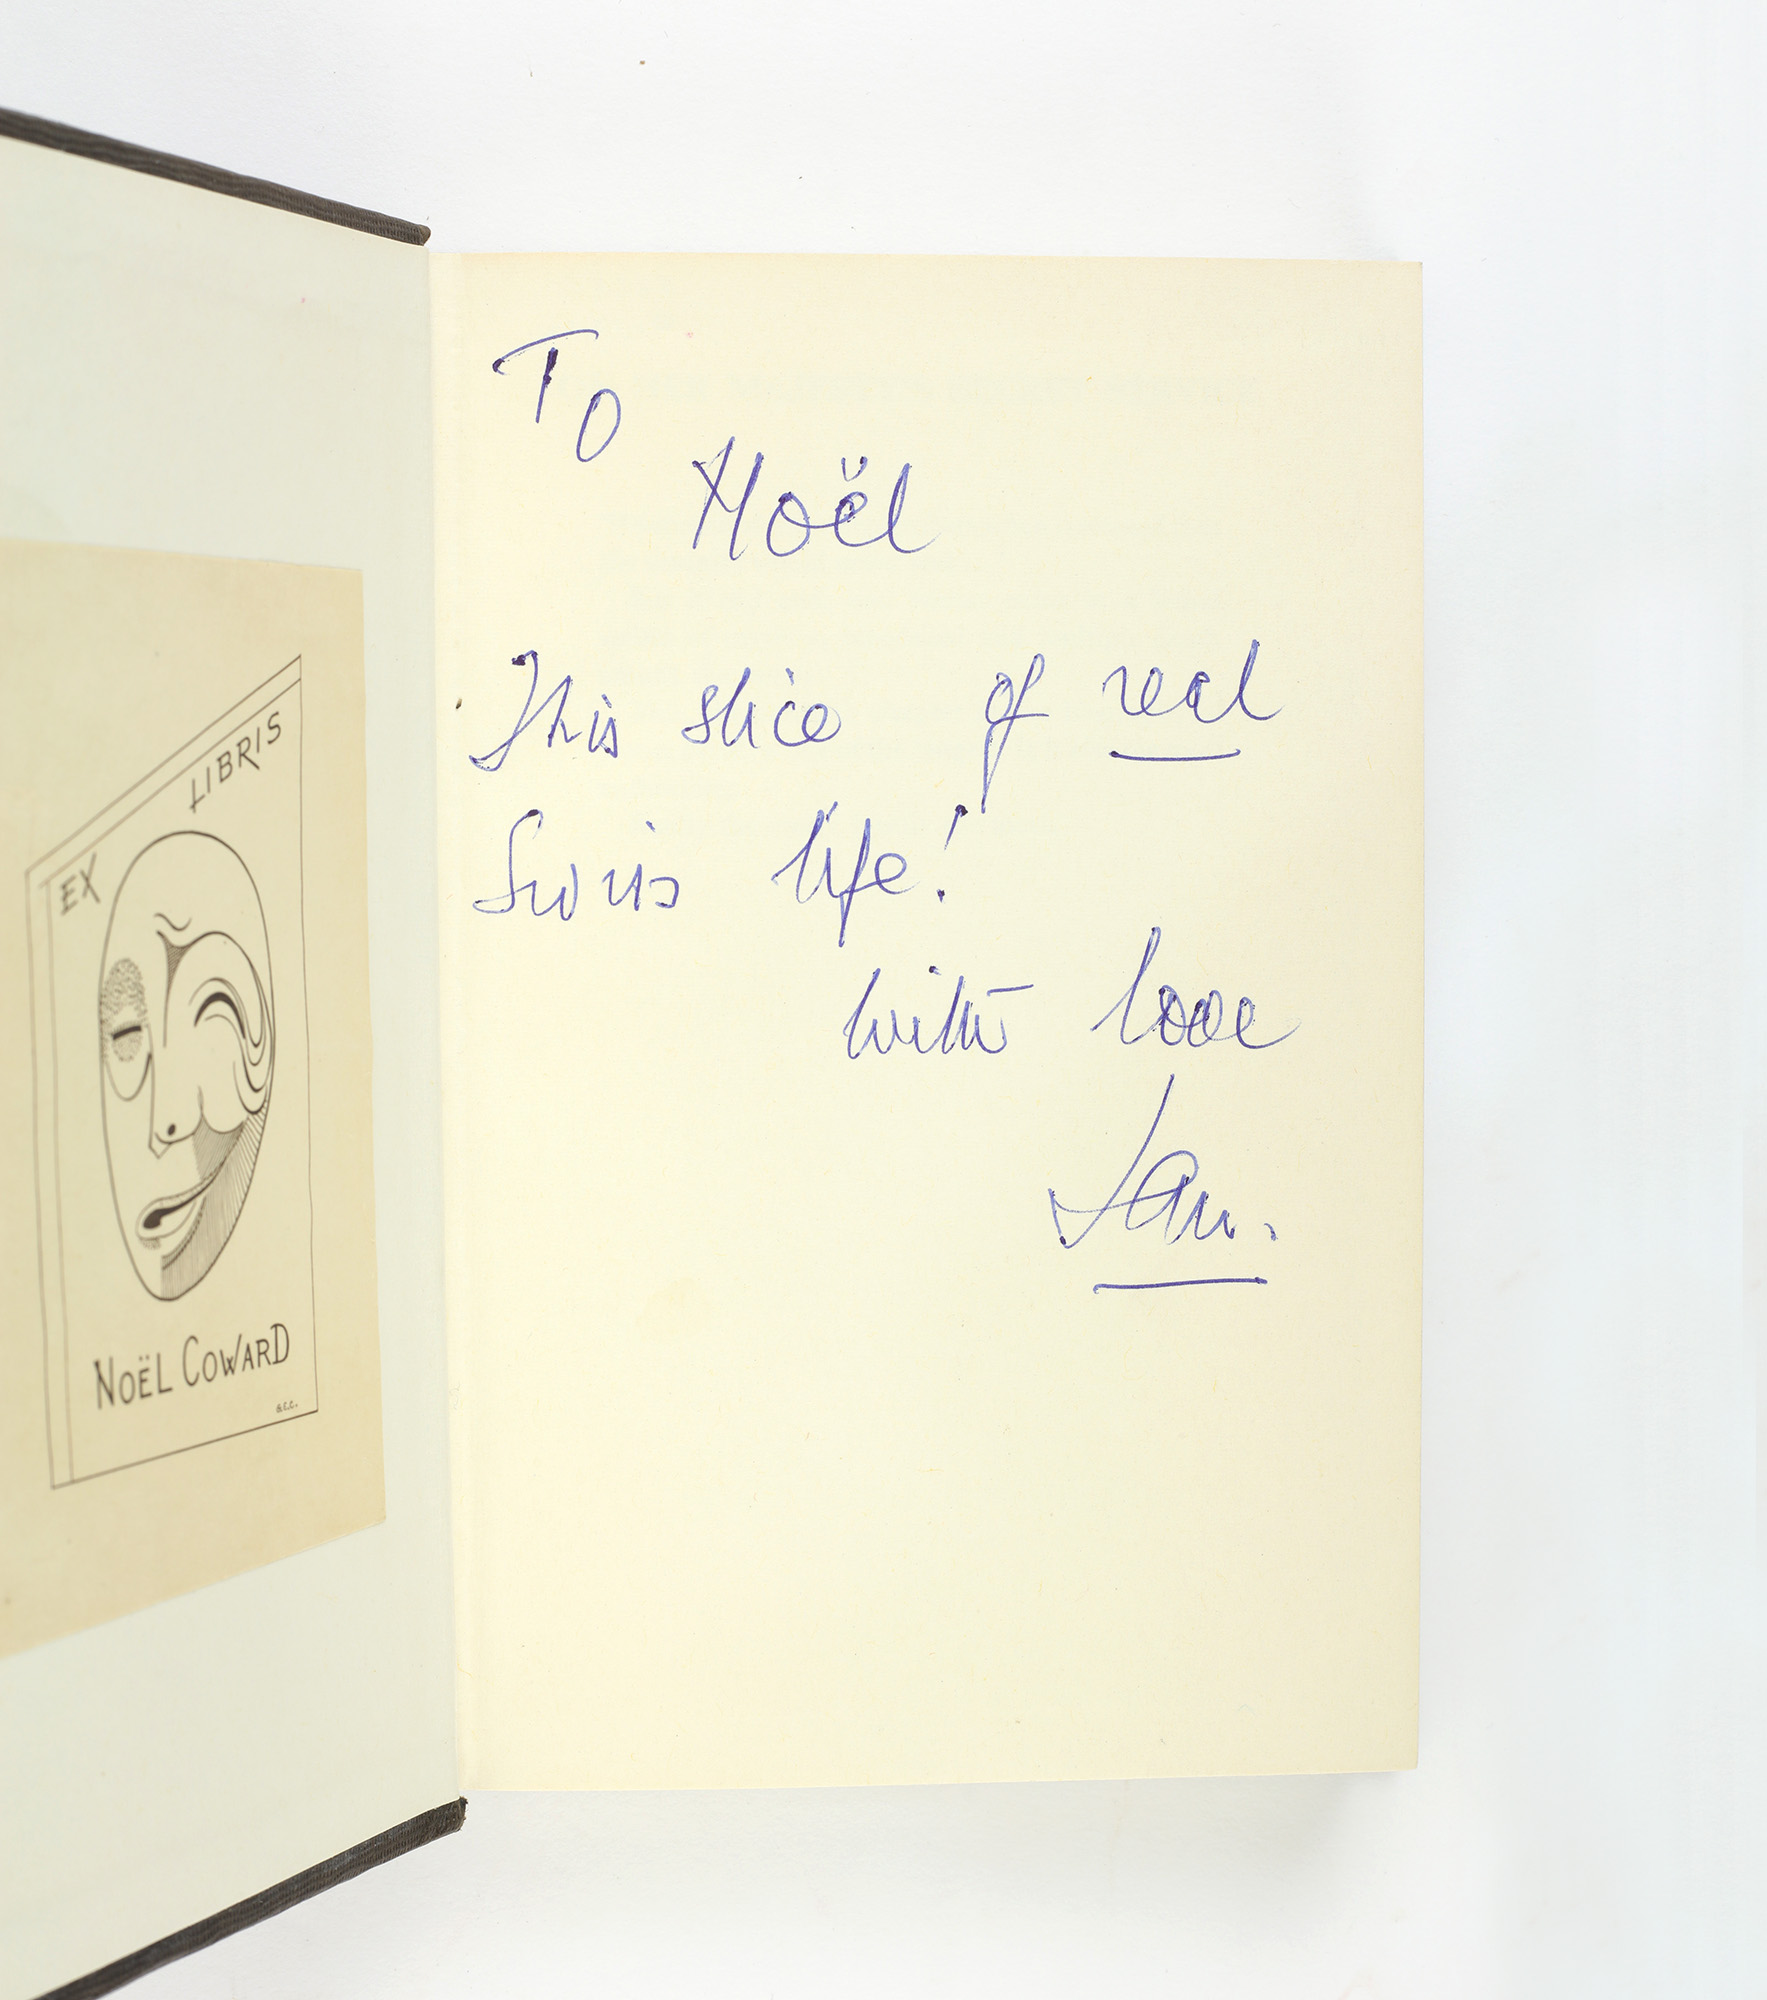 EX LIBRIS
NOËL COWARD
G.C.C.
To
Noël
This slice of real
Swiss life!
with love
Ian.